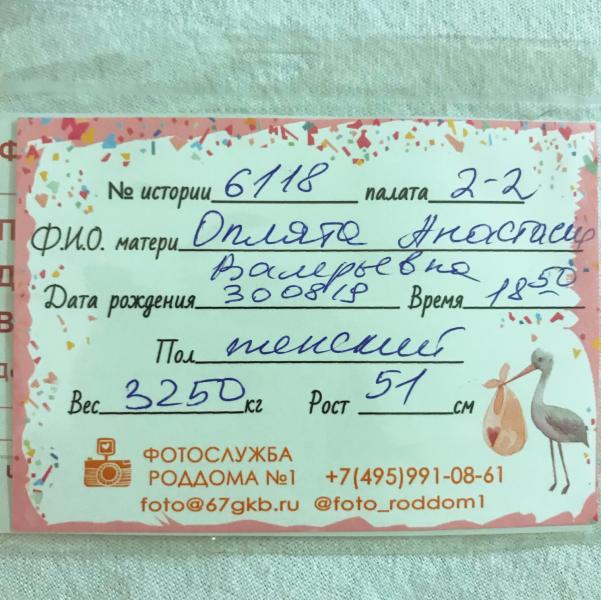 № истории 6118 палата 2-2
Ф.И.О. матери Оплята Анастасия
Валерьевна
Дата рождения 300819 Время 18 50
Пол женский
Вес 3250 кг Рост 51 см
ФОТОСЛУЖБА
РОДДОМА №1 +7(495)991-08-61
foto@67gkb.ru @foto_roddom1